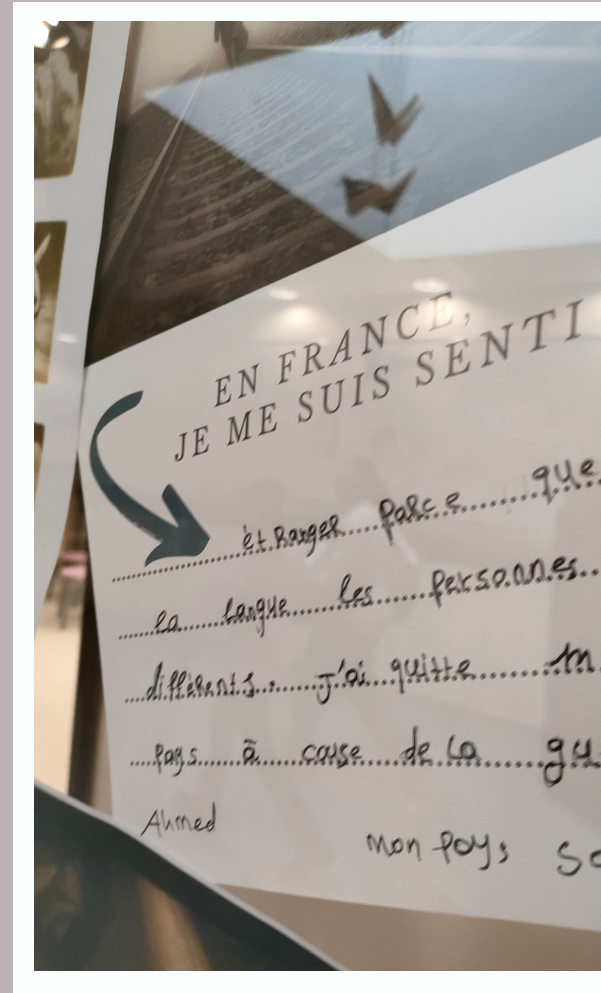 EN FRANCE,
JE ME SUIS SENTI
étRangeR parce que
la langue les personnes
différents. J'ai quitte
pays à cause de la
Ahmed
Mon pays